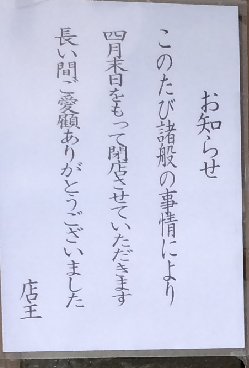 お知らせ
このたび諸般の事情により
四月末日をもって閉店させていただきます
長い間ご愛顧ありがとうございました
店主